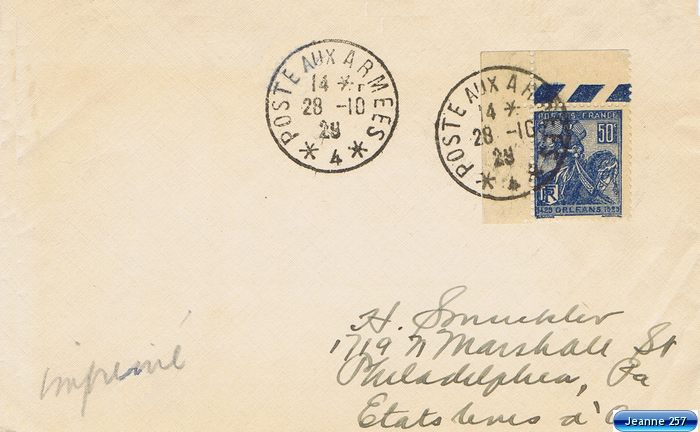 POSTE AUX ARMEES
14 *
28 -10
29
* 4 *
POSTE AUX ARMEES
14 *
28 -10
29
* 4 *
POSTES FRANCE
50c
RF
1429 ORLEANS 1929
H. Smuckler
1719 N Marshall St
Philadelphia, Pa
Etats Unis d'A
imprimé
Jeanne 257